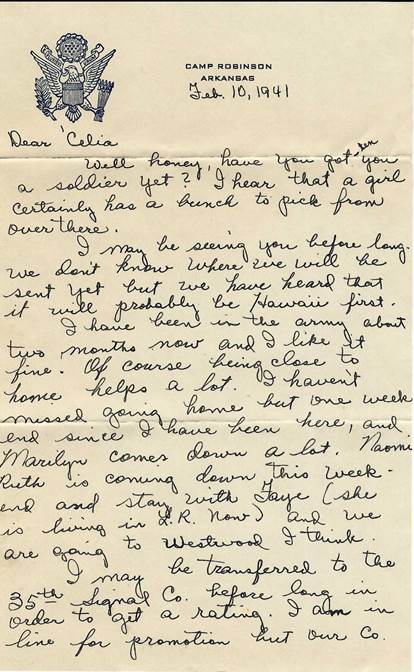 CAMP ROBINSON
ARKANSAS
Feb. 10, 1941
Dear 'Celia
Well honey, have you got-ten you
a soldier yet? I hear that a girl
certainly has a bunch to pick from
over there.
I may be seeing you before long.
We don't know where we will be
sent yet but we have heard that
it will probably be Hawaii first.
I have been in the army about
two months now and I like it
fine. Of course being close to
home helps a lot. I haven't
missed going home but one week
end since I have been here, and
Marilyn comes down a lot. Naomi
Ruth is coming down this week-
end and stay with Faye (she
is living in L.R. Now) and we
are going to Westwood I think.
I may be transferred to the
35th Signal Co. before long in
order to get a rating. I am in
line for promotion but our Co.